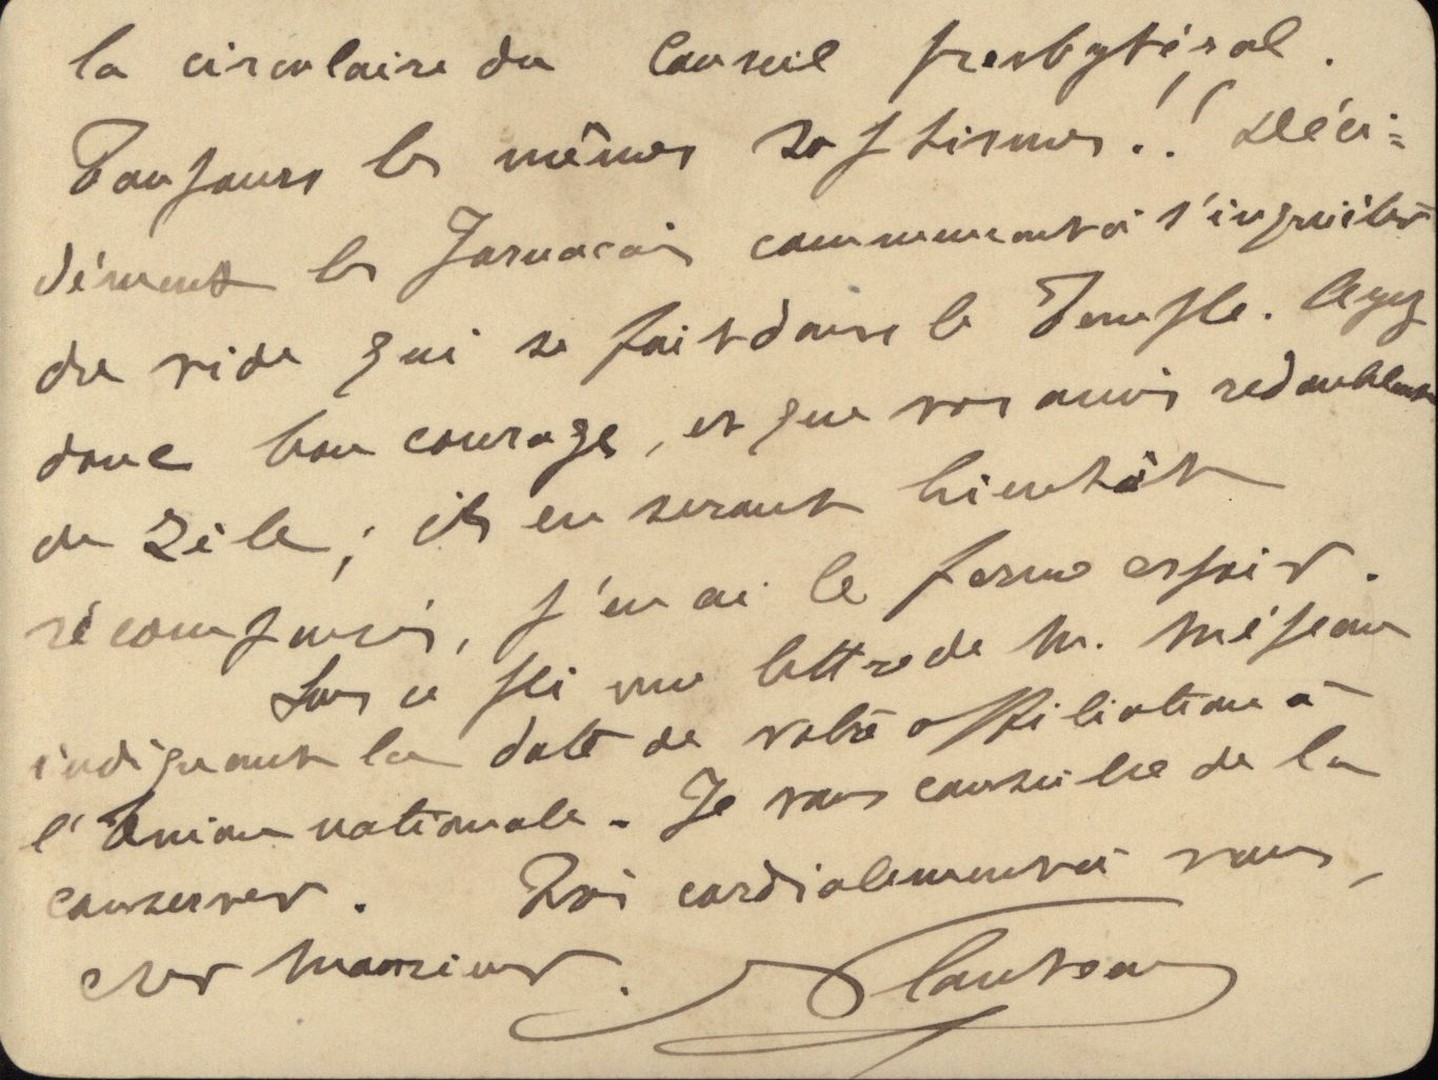 la circulaire du Conseil presbytéral.
Toujours les mêmes sophismes!! Déci=
dément les Jarnacais commencent à s'inquiéter
du vide qui se fait dans le Temple. Ayez
donc bon courage, et que vos amis redoublent
de zèle; ils en seront bientôt
récompensés, j'en ai le ferme espoir.
Sous ce pli une lettre de M. Méjean
indiquant la date de votre affiliation à
l'Union nationale. Je vous conseille de la
conserver. Bien cordialement à vous,
cher Monsieur.